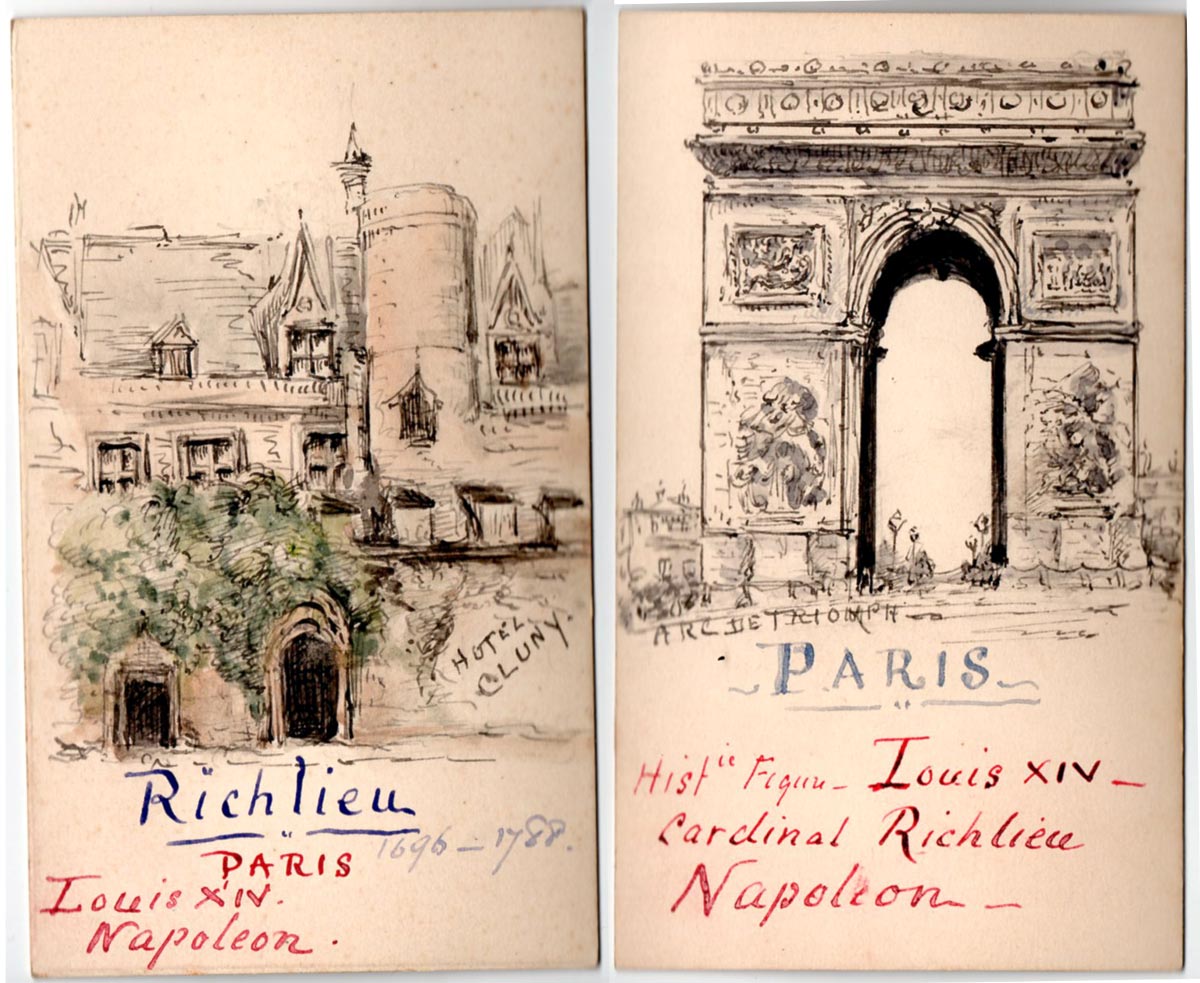 HOTEL
CLUNY.
Richlieu
1696 – 1788.
PARIS
Louis XIV.
Napoleon.
ARC DE TRIOMPH
PARIS
Histic Figur – Louis XIV –
Cardinal Richlieu
Napoleon –